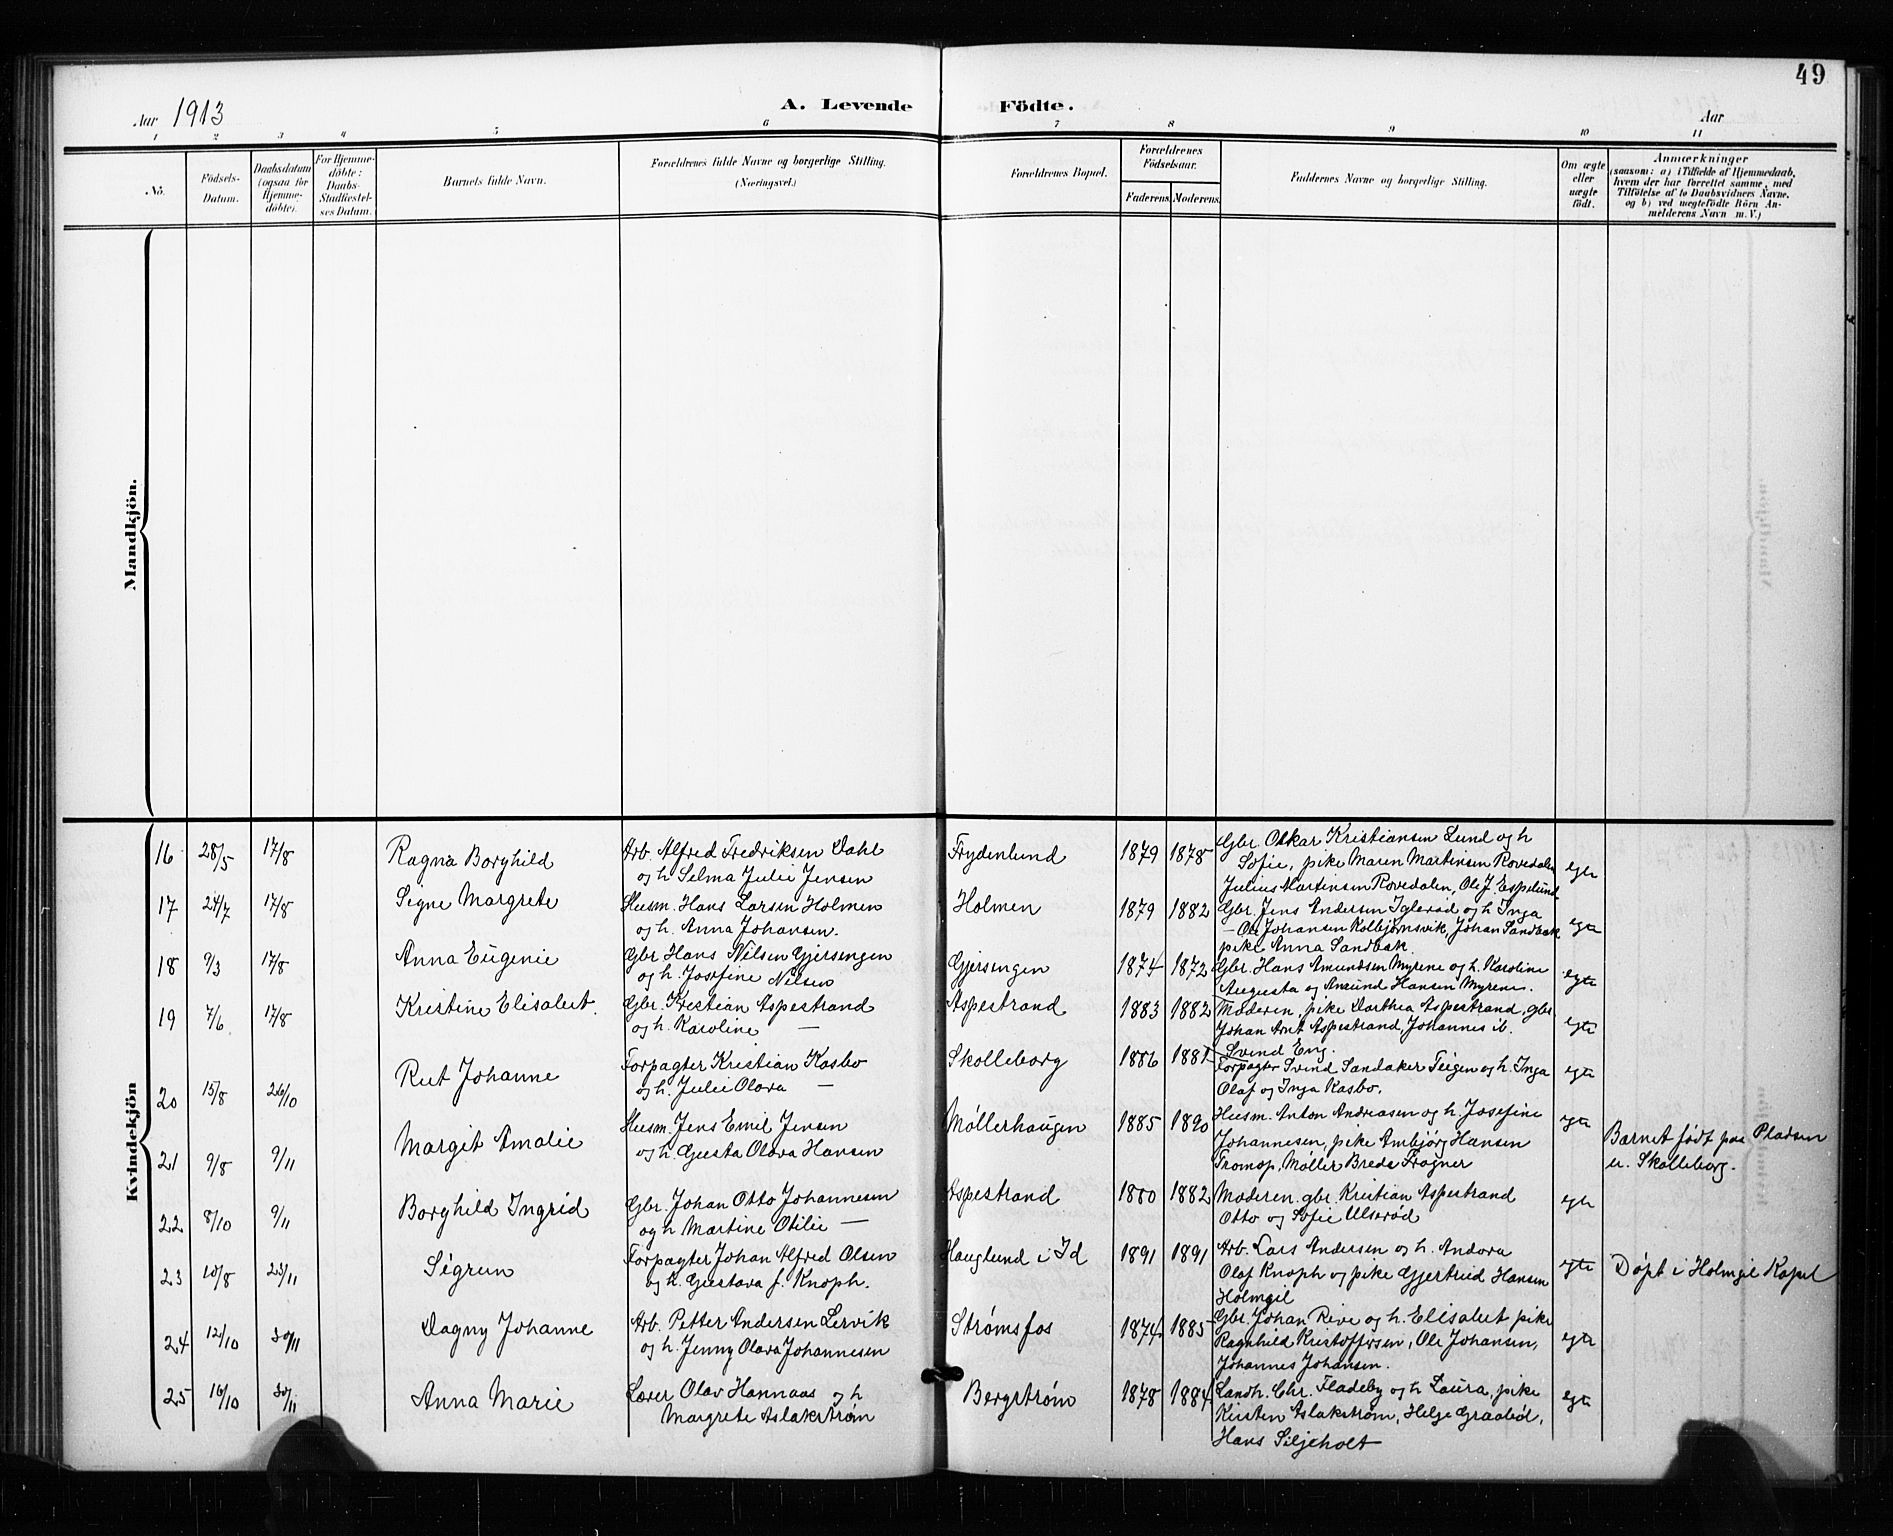 49
Aar 1913
A. Levende Födte.
Aar
1 2 3 4 5 6 7 8 9 10 11
No.
Födsels-Datum.
Daabsdatum (ogsaa for Hjemme-döbte).
For Hjemme-döbte: Daabs-Stadfæstel-ses Datum.
Barnets fulde Navn.
Forældrenes fulde Navne og borgerlige Stilling. (Næringsvei.)
Forældrenes Bopæl.
Forældrenes Födselsaar.
Faderens. Moderens.
Faddernes Navne og borgerlige Stilling.
Om ægte eller uægte födt.
Anmærkninger
(saasom: a) i Tilfælde af Hjemmedaab, hvem der har forrettet samme, med Tilföielse af to Daabsvidners Navne, og b) ved uægtefödte Börn An-melderens Navn m. V.)
Mandkjön.
Kvindekjön
16 28/5 17/8 Ragna Borghild
Arb. Alfred Fredriksen Dahl
og h Selma Julie Jensen
Frydenlund 1879 1878
Gbr. Oskar Kristiansen Lund og h
Sofie, pike Maren Martinsen Rovedalen
Julius Martinsen Rovedalen, Ole J. Espelund
egte
17 24/7 17/8 Signe Margrete
Husm. Hans Larsen Holmen
og h. Anna Johansen.
Holmen 1879 1882
Gbr. Jens Andersen Iglerød og h Inga
- Ole Johansen Kolbjørnsvik, Johan Sandbæk
pike Anna Sandbæk
egte
18 9/3 17/8 Anna Eugenie
Gbr Hans Nilsen Gjersengen
og h. Josefine Nilsen
Gjersengen 1874 1872
Gbr. Hans Amundsen Myrene og h. Karoline
Augusta og Amund Hansen Myrene.
egte
19 7/6 17/8 Kristine Elisabet.
Gbr. Kristian Aspestrand
og h. Karoline —
Aspestrand 1883 1882
Moderen, pike Dorthea Aspestrand, gbr.
Johan Arnt Aspestrand, Johannes ib.
Svind Eng.
egte
20 15/8 26/10 Rut Johanne
Forpagter Kristian Kasbo
og h. Julie Olava —
Skolleborg 1886 1881
Forpagter Svind Sandaker Teigen og h. Inga
Olaf og Inga Kasbo.
egte
21 9/8 9/11 Margit Amalie
Husm. Jens Emil Jensen
og h. Gusta Olava Hansen
Møllerhaugen 1885 1890
Husm. Anton Andreasen og h. Josefine
Johannesen, pike Ambjørg Hansen
Tromop, Møller Brede Fragner
egte
Barnet født paa Pladsen
u. Skolleborg.
22 8/10 9/11 Borghild Ingrid
Gbr. Johan Otto Johannesen
og h Martine Otilie —
Aspestrand 1880 1882
Moderen. gbr. Kristian Aspestrand
Otto og Sofie Ulserød
egte
23 10/8 23/11 Sigrun
Forpagter Johan Alfred Olsen
og h. Gustava f. Knoph.
Hauglund i Id 1891 1891
Arb. Lars Andersen og h. Andora
Olaf Knoph og pike Gjertrud Hansen
Holmgil
egte
Døpt i Holmgil Kapel
24 12/10 30/11 Dagny Johanne
Arb. Petter Andersen Lervik
og h. Jenny Olava Johannesen
Strømsfos 1874 1885
Gbr. Johan Reve og h. Elisabet pike
Ragnhild Kristoffersen, Ole Johansen,
Johannes Johansen.
egte
25 16/10 30/11 Anna Marie
Lærer Olav Hannaas og h
Margrete Aslakstrøm
Bergstrøm 1878 1884
Landh. Chr. Fladeby og h Laura, pike
Kirsten Aslakstrøm, Helge Graabøl,
Hans Siljeholt
egte